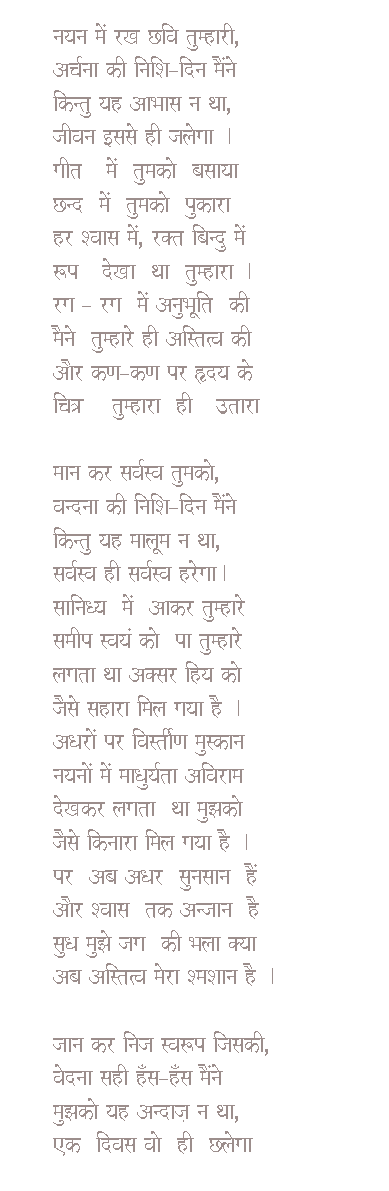 नयन में रख छवि तुम्हारी,
अर्चना की निशि-दिन मैंने
किन्तु यह आभास न था,
जीवन इससे ही जलेगा |
गीत में तुमको बसाया
छन्द में तुमको पुकारा
हर श्वास में, रक्त बिन्दु में
रूप देखा था तुम्हारा |
रग - रग में अनुभूति की
मैने तुम्हारे ही अस्तित्व की
और कण-कण पर हृदय के
चित्र तुम्हारा ही उतारा

मान कर सर्वस्व तुमको,
वन्दना की निशि-दिन मैंने
किन्तु यह मालूम न था,
सर्वस्व ही सर्वस्व हरेगा|
सानिध्य में आकर तुम्हारे
समीप स्वयं को पा तुम्हारे
लगता था अक्सर हिय को
जैसे सहारा मिल गया है |
अधरों पर विर्स्तीण मुस्कान
नयनों में माधुर्यता अविराम
देखकर लगता था मुझको
जैसे किनारा मिल गया है |
पर अब अधर सुनसान हैं
और श्वास तक अन्जान है
सुध मुझे जग की भला क्या
अब अस्तित्व मेरा श्मशान है |

जान कर निज स्वरूप जिसकी,
वेदना सही हँस-हँस मैंने
मुझको यह अन्दाज़ न था,
एक दिवस वो ही छलेगा